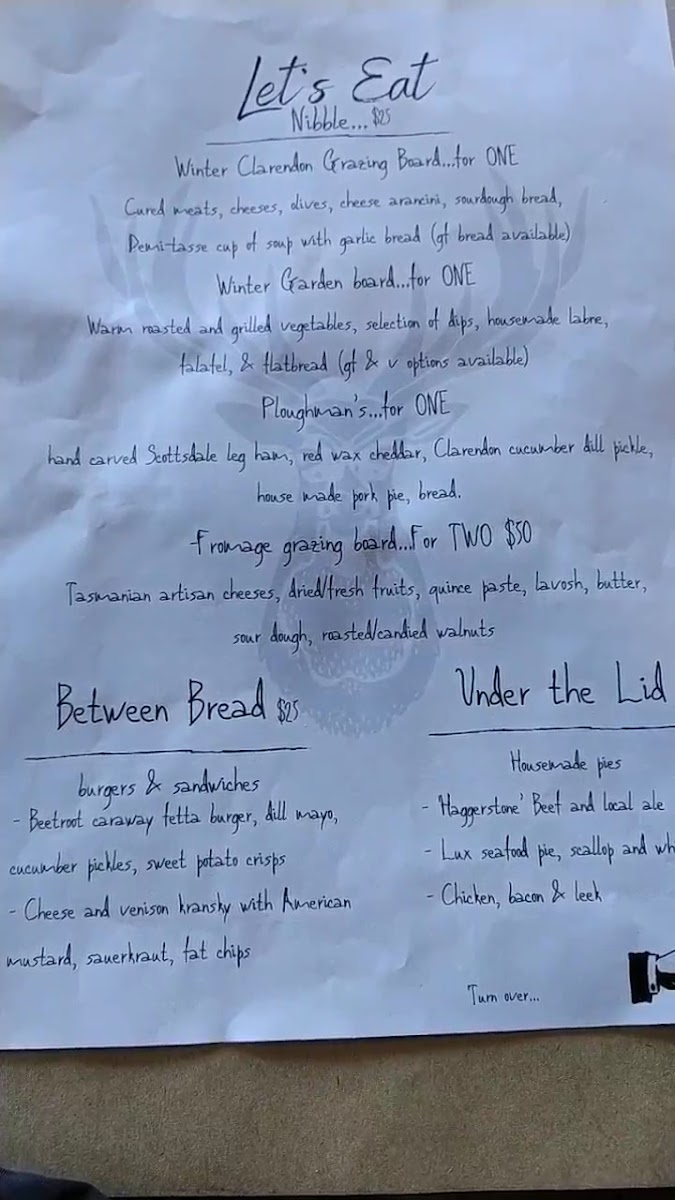 Let's Eat
Nibble... $25
Winter Clarendon Grazing Board...for ONE
Cured meats, cheeses, olives, cheese arancini, sourdough bread,
Demi-tasse cup of soup with garlic bread (gf bread available)
Winter Garden board...for ONE
Warm roasted and grilled vegetables, selection of dips, housemade labne,
falafel, & flatbread (gf & v options available)
Ploughman's...for ONE
hand carved Scottsdale leg ham, red wax cheddar, Clarendon cucumber dill pickle,
house made pork pie, bread.
Fromage grazing board...For TWO $50
Tasmanian artisan cheeses, dried/fresh fruits, quince paste, lavosh, butter,
sour dough, roasted/candied walnuts
Between Bread $25
burgers & sandwiches
- Beetroot caraway fetta burger, dill mayo,
cucumber pickles, sweet potato crisps
- Cheese and venison kransky with American
mustard, sauerkraut, fat chips
Under the Lid
Housemade pies
- 'Haggerstone' Beef and local ale
- Lux seafood pie, scallop and wh
- Chicken, bacon & leek
Turn over...